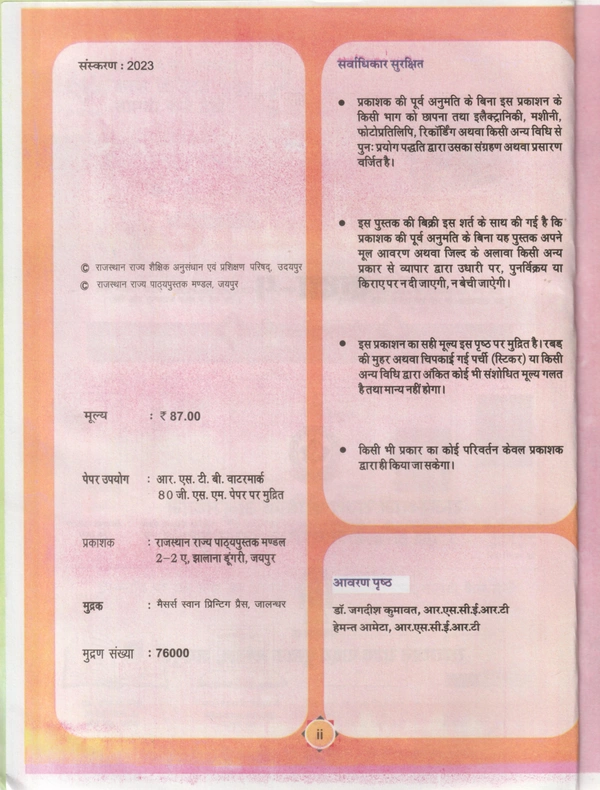 संस्करण : 2023
© राजस्थान राज्य शैक्षिक अनुसंधान एवं प्रशिक्षण परिषद्, उदयपुर
© राजस्थान राज्य पाठ्यपुस्तक मण्डल, जयपुर
मूल्य : ₹ 87.00
पेपर उपयोग : आर. एस. टी. बी. वाटरमार्क
80 जी. एस. एम. पेपर पर मुद्रित
प्रकाशक : राजस्थान राज्य पाठ्यपुस्तक मण्डल
2-2 ए, झालाना डूंगरी, जयपुर
मुद्रक : मैसर्स स्वान प्रिन्टिग प्रैस, जालन्धर
मुद्रण संख्या : 76000
सर्वाधिकार सुरक्षित
● प्रकाशक की पूर्व अनुमति के बिना इस प्रकाशन के
किसी भाग को छापना तथा इलैक्ट्रानिकी, मशीनी,
फोटोप्रतिलिपि, रिकॉर्डिंग अथवा किसी अन्य विधि से
पुनः प्रयोग पद्धति द्वारा उसका संग्रहण अथवा प्रसारण
वर्जित है।
● इस पुस्तक की बिक्री इस शर्त के साथ की गई है कि
प्रकाशक की पूर्व अनुमति के बिना यह पुस्तक अपने
मूल आवरण अथवा जिल्द के अलावा किसी अन्य
प्रकार से व्यापार द्वारा उधारी पर, पुनर्विक्रय या
किराए पर न दी जाएगी, न बेची जाऐगी।
● इस प्रकाशन का सही मूल्य इस पृष्ठ पर मुद्रित है। रबड़
की मुहर अथवा चिपकाई गई पर्ची (स्टिकर) या किसी
अन्य विधि द्वारा अंकित कोई भी संशोधित मूल्य गलत
है तथा मान्य नहीं होगा।
● किसी भी प्रकार का कोई परिवर्तन केवल प्रकाशक
द्वारा ही किया जा सकेगा।
आवरण पृष्ठ
डॉ. जगदीश कुमावत, आर.एस.सी.ई.आर.टी
हेमन्त आमेटा, आर.एस.सी.ई.आर.टी
ii